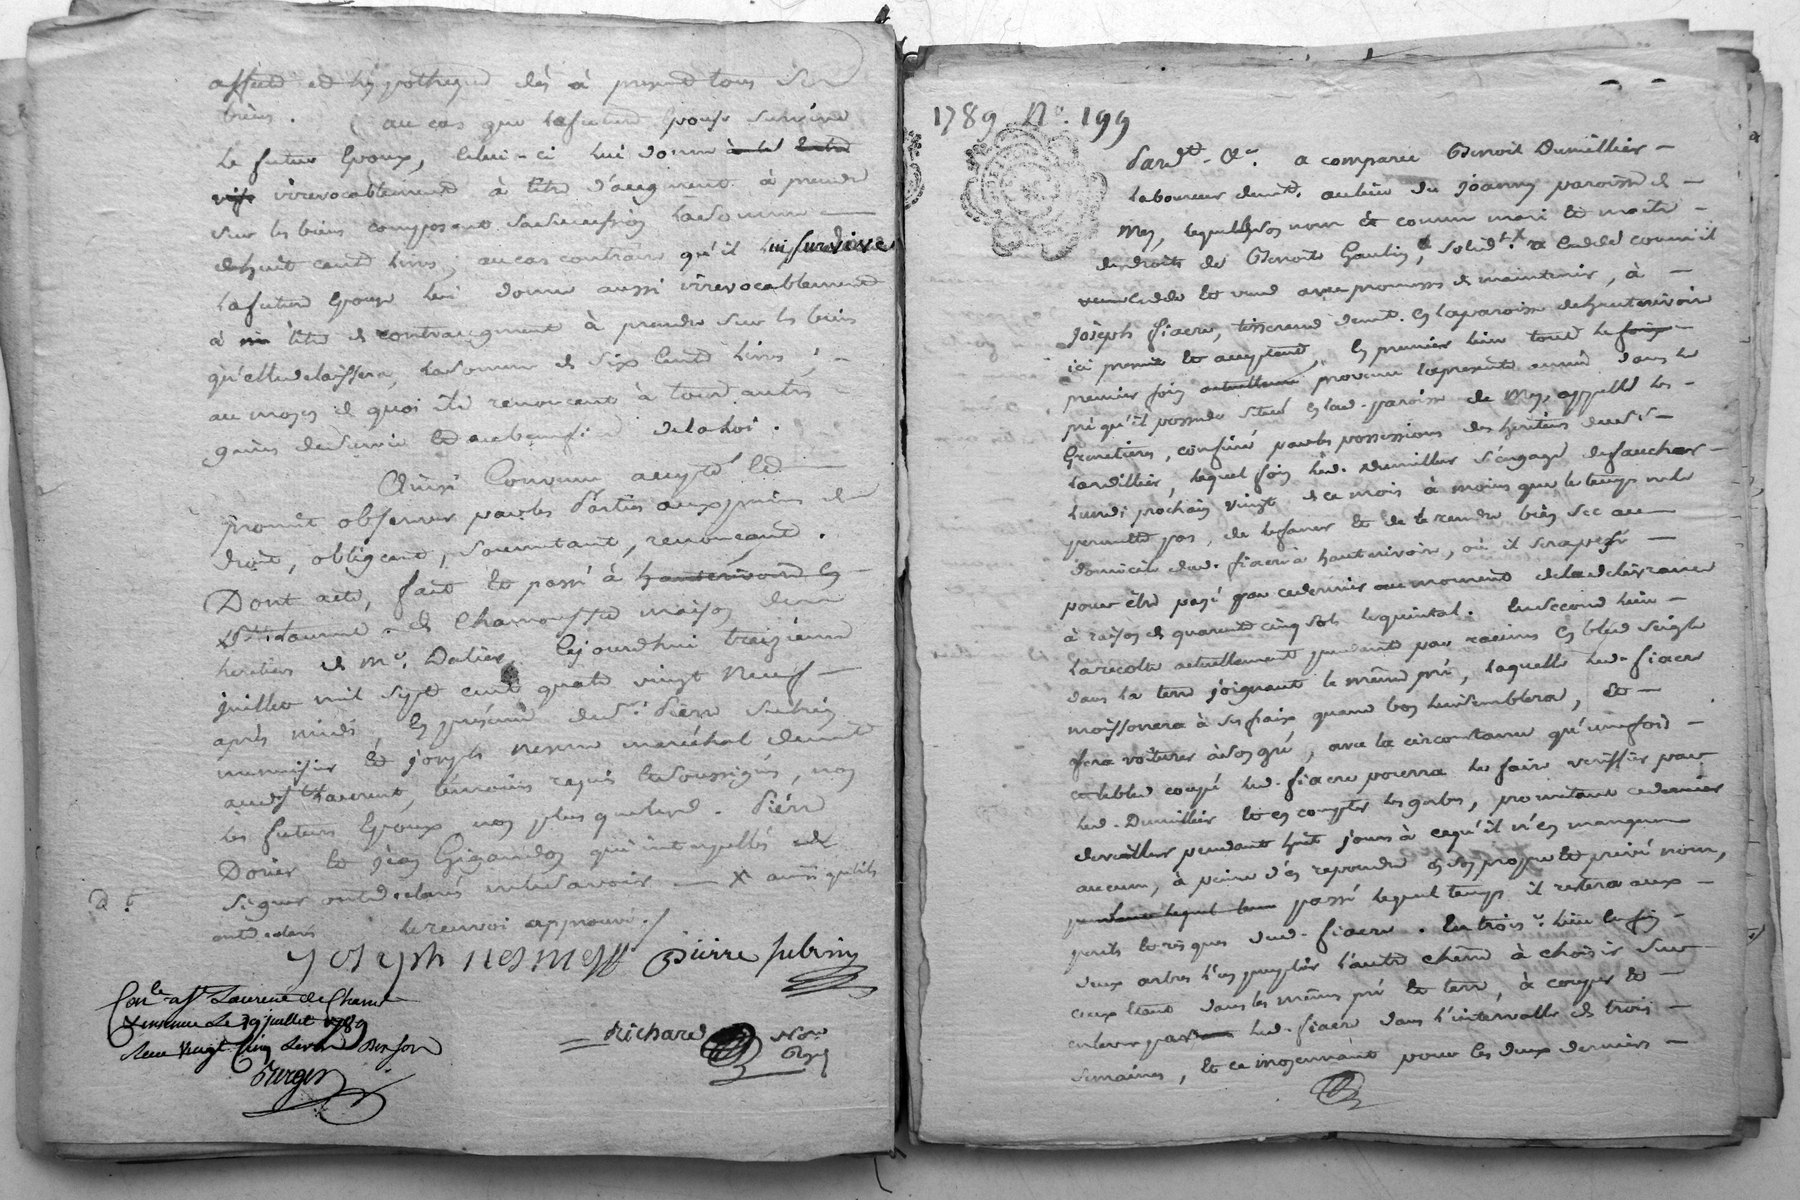 affecte et hypotheque dès à present tous ses
biens. au cas que la future Epouse survive
le futur Epoux, celui-ci lui donne
irrevocablement à titre d'augment à prendre
sur les biens composant sa succession la somme
de huit cent livres; au cas contraire qu'il lui survive
la future Epouse lui donne aussi irrevocablement
à titre de contraugment à prendre sur les biens
qu'elle delaissera, la somme de six cent livres;
au moyen de quoi ils renoncent à tous autres
gains de survie et au benefice de la Loi.
Ainsi Convenu accepté et
promit observer par les Parties aux peines de
droit, obligeant, soumettant, renonceant.
Dont acte, fait et passé à
St Laurent de Chamousset maison des
heritiers de Mr. Dalier Cejourdhui treizieme
juillet mil sept cent quatre vingt neuf
après midi, En présence de Sr. Pierre Subrin
menuisier et joseph nesme maréchal demt
audt St Laurent, témoins requis et soussignés, non
les futurs Epoux non plus que led. Pierre
Dorier et jean Gigandon qui interpellés de
signer ont declaré ne le savoir X ainsi qu'ils
ont declaré le renvoi approuvé./
joseph nesme Pierre subrin
Con.le à St Laurent de Chamousset
le 19 juillet 1789
Reçu Vingt Cinq
Richard Nore Royl
1789 No. 199
Pardt. &a. a comparu Benoit Dumillier
Laboureur demt. au lieu du joanny paroisse de
Mey, lequel de son nom et comme mari et maitre
des droits de Benoite Gaulin, solidt. X a cedé comme il
vend cedde et vend avec promesse de maintenir, à
joseph fiacre, tisserand demt. en la paroisse de hauterivoire
ici present et acceptant, En premier lieu tout le foin
premier foin provenu la presente année dans le
pré qu'il possede situé en lad. paroisse de Mey, appellé les
Genetieres, confiné par les possessions des heritiers
lardillier, lequel foin led. Dumillier s'engage de faucher
Lundi prochain vingt de ce mois à moins que le temps ne le
permette pas, de le faner et de le rendre bien sec au
domicile dud. fiacre à hauterivoire, où il sera pesé
pour être payé par ce dernier au moment de la delivrance
à raison de quarante cinq sols le quintal. En second lieu
la recolte actuellement pendante par racines En bled seigle
dans la terre joignant le même pré, laquelle led. fiacre
moissonnera à ses fraix quand bon lui semblera, et
fera voiturer à son gré, avec la circonstance qu'une fois
le bled coupé led. fiacre pourra le faire veriffier par
led. Dumillier et en compter les gerbes, promettant ce dernier
de veiller pendant huit jours à ce qu'il n'en manque
aucune, à peine d'en repondre en son propre et privé nom,
pendant lequel tems passé lequel temps il restera aux
perils et risques dud. fiacre. En trois.e lieu Enfin
deux arbres l'un peuplier l'autre chêne à choisir sur
ceux étant dans les mêmes pré et terre, à couper et
enlever par led. fiacre dans l'intervalle de trois
semaines, et ce moyennant pour les deux derniers